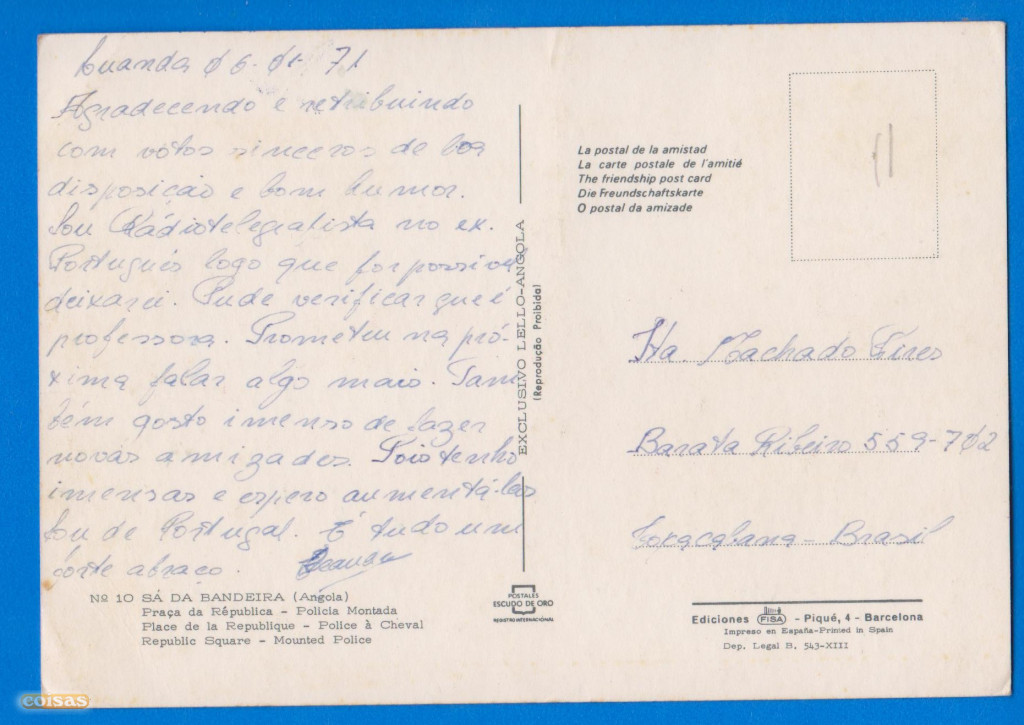 Luanda 06-01-71
Agradecendo e retribuindo
com vótos sinceros de boa
disposição e bom humor.
Sou Rádiotelegrafista no ex.
Português logo que for possivel
deixarei. Pude verificar que é
professora. Prometeu na pró-
xima falar algo mais. Tam
bém gosto imenso de fazer
novas amizades. Pois tenho
imensas e espero aumentá-las
Sou de Portugal. É tudo um
forte abraço.
Nº 10 SÁ DA BANDEIRA (Angola)
Praça da Républica - Policia Montada
Place de la Republique - Police à Cheval
Republic Square - Mounted Police
EXCLUSIVO LELLO-ANGOLA
(Reprodução Proibida)
POSTALES
ESCUDO DE ORO
REGISTRO INTERNACIONAL
La postal de la amistad
La carte postale de l'amitié
The friendship post card
Die Freundschaftskarte
O postal da amizade
Machado Pires
Barata Ribeiro 559-702
Copacabana - Brasil
Ediciones FISA - Piqué, 4 - Barcelona
Impreso en España-Printed in Spain
Dep. Legal B. 543-XIII
coisas